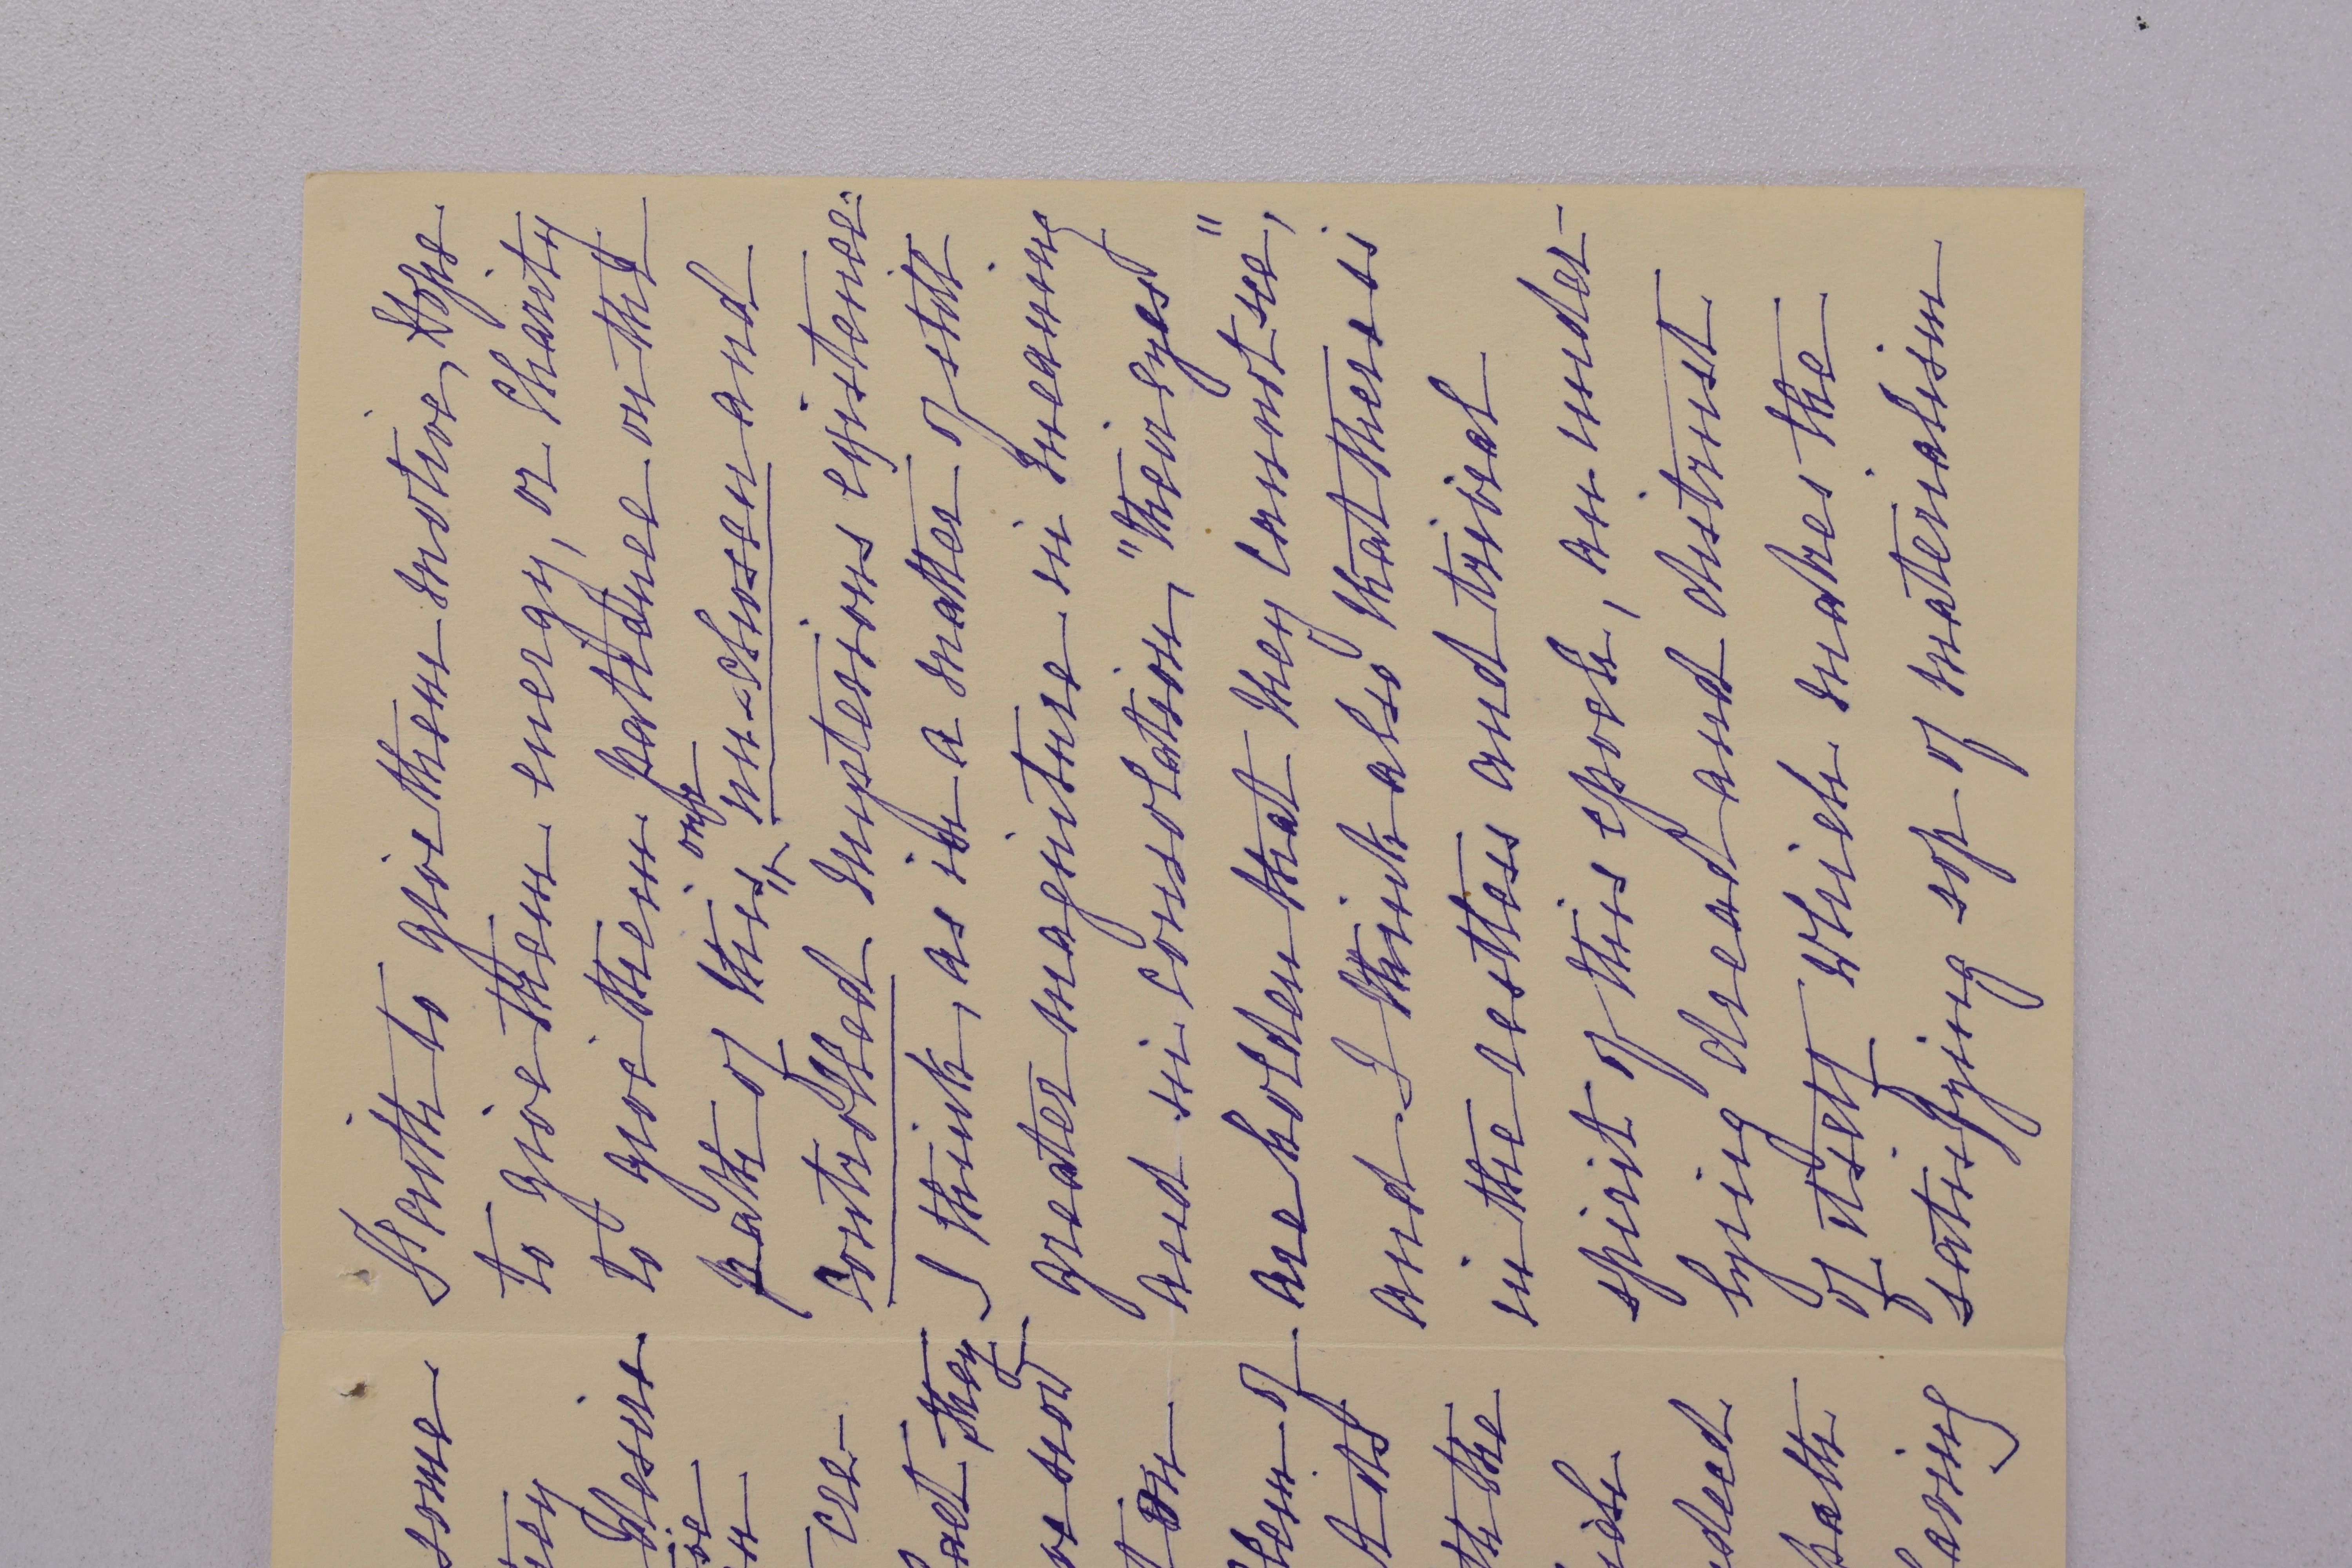 some
desire
cre-
fact they
now
on
of
the
path
Faith to give them motive, Hope
to give them energy, or Charity
to give them patience on the
path of this only un-chosen and
controlled mysterious existence.
I think, as in a matter of still
greater magnitude in meaning
and in consolation, "their eyes
are holden that they cannot see,"
and I think also that there is
in the restless and trivial
spirit of this epoch, an under-
lying dread and distrust
of itself which makes the
satisfying sop of materialism